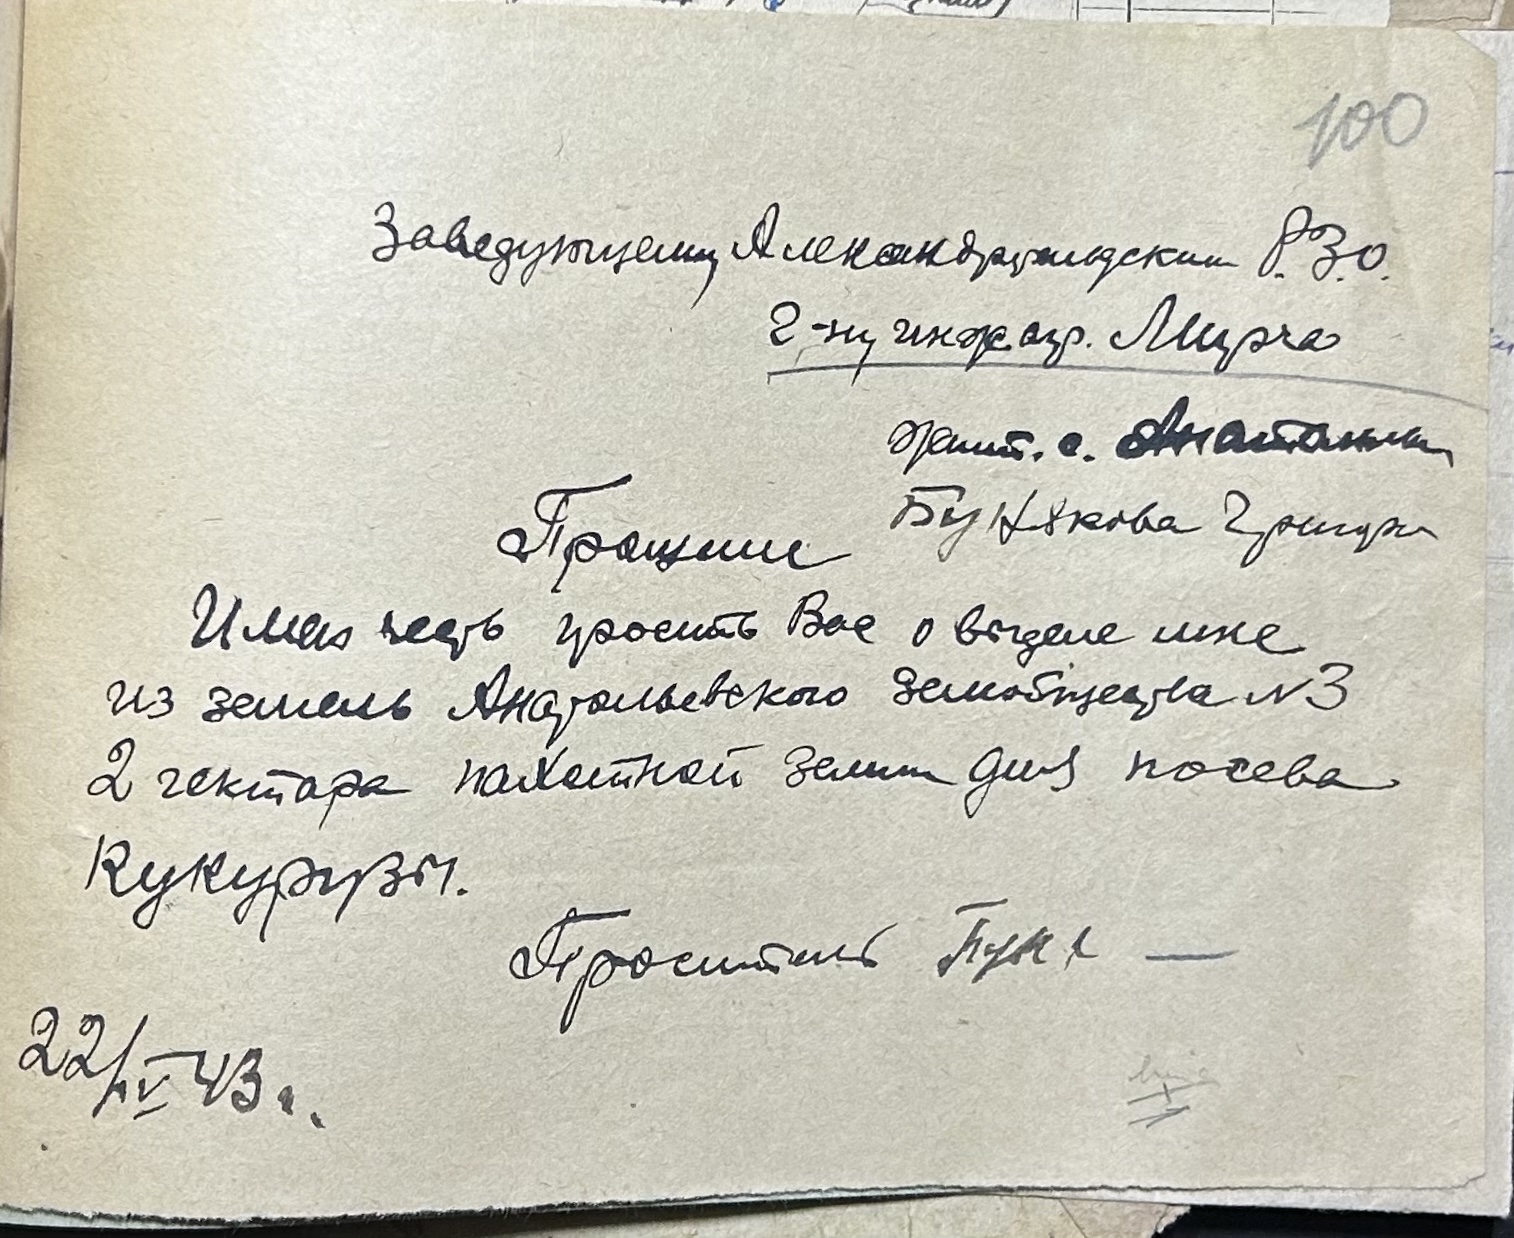 100
Заведующему Александрфельдским Р.З.О.
г-ну инж. агр. Мирча
жит. с. Анатольевки
Бунякова Григори
Прошение
Имею честь просить Вас о выделе мне
из земель Анатольевского Земобщества N3
2 гектара пахотной земли для посева
Кукурузы.
Проситель
22/IV 43 г.